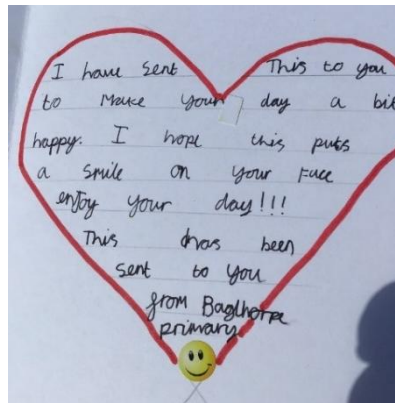 I have sent This to you
to Make your day a bit
happy. I hope this puts
a smile on your Face
enJoy your day!!!
This has been
sent to you
from Bagthorpe
primary